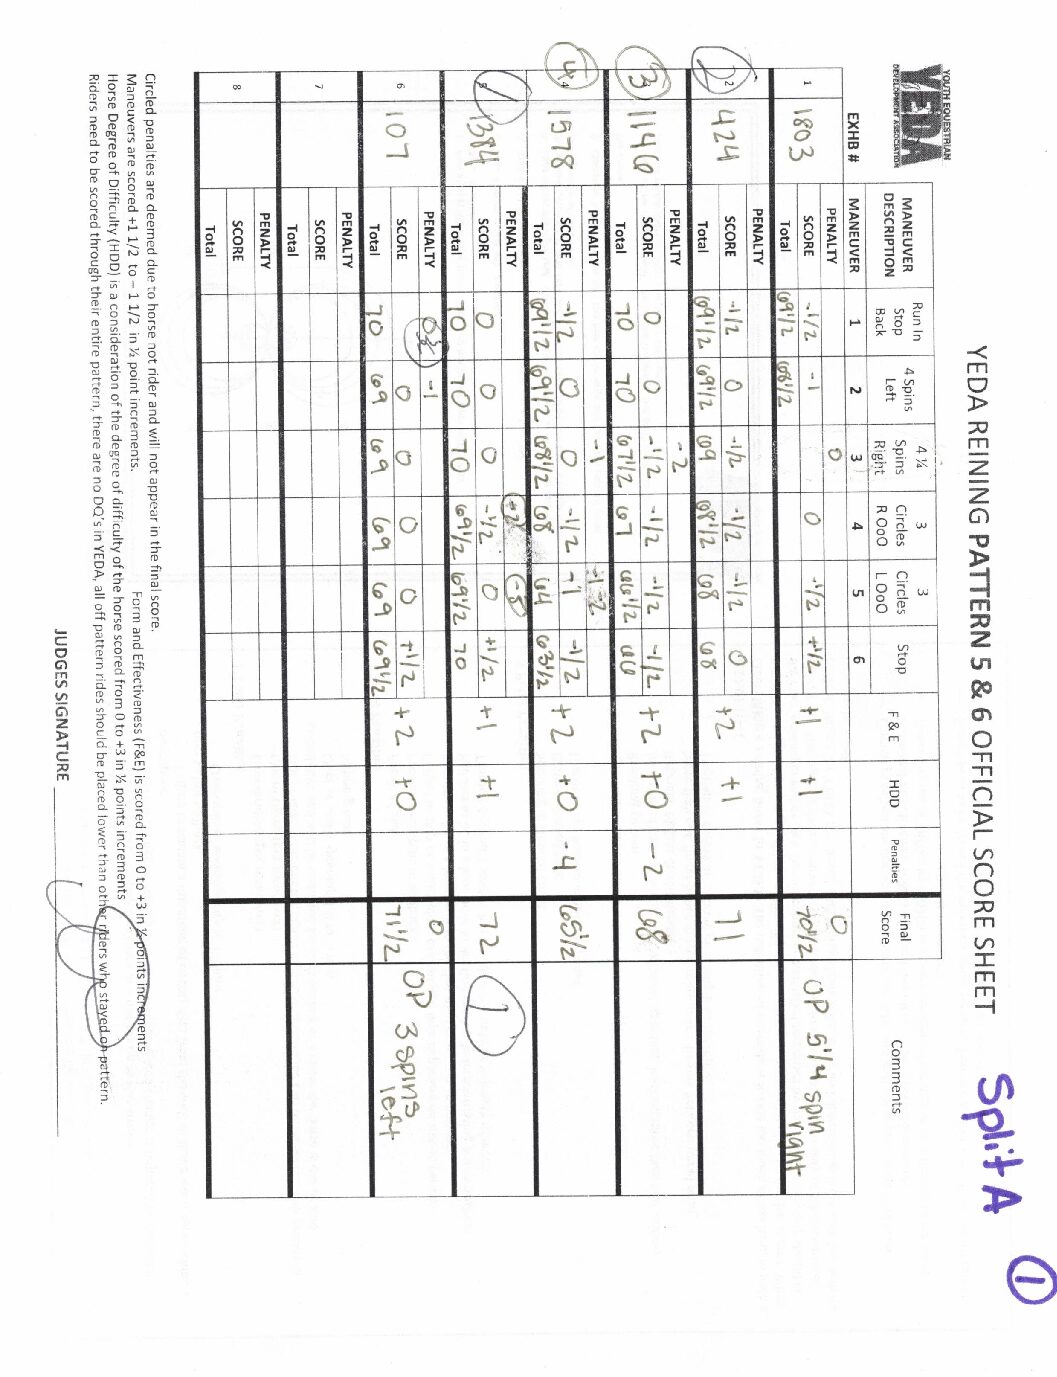 YOUTH EQUESTRIAN
YEDA
DEVELOPMENT ASSOCIATION
YEDA REINING PATTERN 5 & 6 OFFICIAL SCORE SHEET
Split A
1
MANEUVER DESCRIPTION Run In Stop Back 4 Spins Left 4 ¼ Spins Right 3 Circles R OoO 3 Circles L OoO Stop F & E HDD Penalties Final Score Comments
EXHB # MANEUVER 1 2 3 4 5 6
1 1803 PENALTY 0 0
SCORE -1/2 -1 0 -1/2 +1/2 +1 +1 70 1/2 OP 5 1/4 spin right
Total 69 1/2 68 1/2
2 424 PENALTY
SCORE -1/2 0 -1/2 -1/2 -1/2 0 +2 +1 71
Total 69 1/2 69 1/2 69 68 1/2 68 68
3 1146 PENALTY -2
SCORE 0 0 -1/2 -1/2 -1/2 -1/2 +2 +0 -2 68
Total 70 70 67 1/2 67 66 1/2 66
4 1578 PENALTY -1 -1 -2
SCORE -1/2 0 0 -1/2 -1 -1/2 +2 +0 -4 65 1/2
Total 69 1/2 69 1/2 68 1/2 68 64 63 1/2
1 1384 PENALTY
SCORE 0 0 0 -1/2 0 +1/2 +1 +1 72 1
Total 70 70 70 69 1/2 69 1/2 70
6 107 PENALTY -1 0
SCORE 0 0 0 0 +1/2 +2 +0 71 1/2 OP 3 spins left
Total 70 69 69 69 69 69 1/2
7 PENALTY
SCORE
Total
8 PENALTY
SCORE
Total
Circled penalties are deemed due to horse not rider and will not appear in the final score.
Maneuvers are scored +1 1/2 to – 1 1/2 in ½ point increments. Form and Effectiveness (F&E) is scored from 0 to +3 in ½ points increments
Horse Degree of Difficulty (HDD) is a consideration of the degree of difficulty of the horse scored from 0 to +3 in ½ points increments
Riders need to be scored through their entire pattern, there are no DQ's in YEDA, all off pattern rides should be placed lower than other riders who stayed on pattern.
JUDGES SIGNATURE